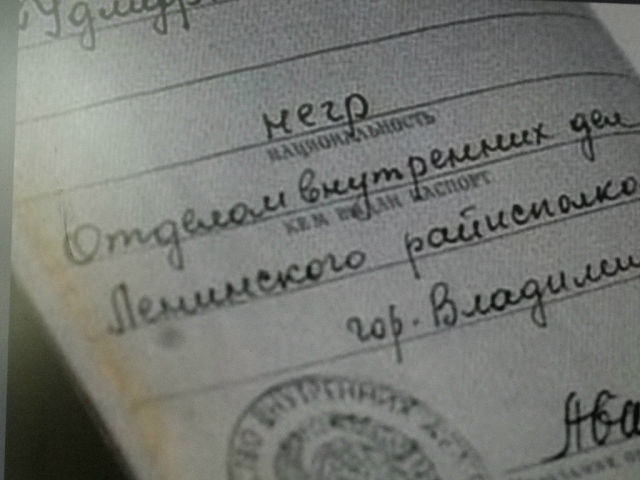 Удмур
негр
НАЦИОНАЛЬНОСТЬ
Отделом внутренних дел
КЕМ ВЫДАН ПАСПОРТ
Ленинского райисполко
гор. Владими
Ава
ВНУТРЕННИХ ДЕЛ